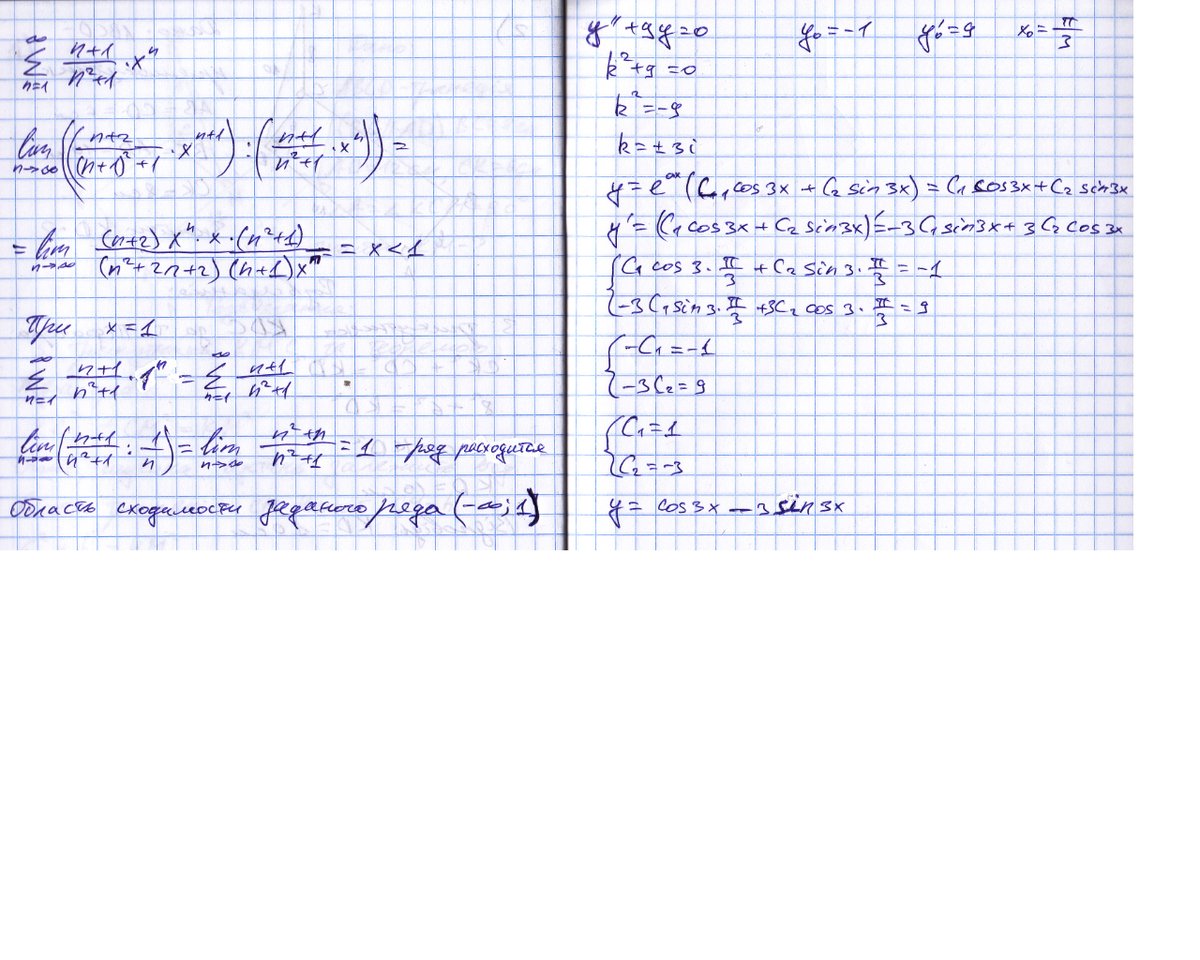 ∑_{n=1}^{∞} (n+1)/(n²+1) · xⁿ
lim_{n→∞} (((n+2)/((n+1)²+1) · x^{n+1}) : ((n+1)/(n²+1) · xⁿ)) =
= lim_{n→∞} ((n+2) xⁿ · x · (n²+1))/((n²+2n+2)(n+1)xⁿ) = = x < 1
При x = 1
∑_{n=1}^{∞} (n+1)/(n²+1) · 1ⁿ = ∑_{n=1}^{∞} (n+1)/(n²+1)
lim_{n→∞} ((n+1)/(n²+1) : 1/n) = lim_{n→∞} (n²+n)/(n²+1) = 1 – ряд расходится
Область сходимости заданого ряда (-∞; 1)
y'' + 9y = 0 y₀ = -1 y₀' = 9 x₀ = π/3
k² + 9 = 0
k² = -9
k = ± 3i
y = e^{0x} (C₁ cos 3x + C₂ sin 3x) = C₁ cos 3x + C₂ sin 3x
y' = (C₁ cos 3x + C₂ sin 3x)' = -3C₁ sin 3x + 3C₂ cos 3x
{ C₁ cos 3 · π/3 + C₂ sin 3 · π/3 = -1
-3C₁ sin 3 · π/3 + 3C₂ cos 3 · π/3 = 9
{ -C₁ = -1
-3C₂ = 9
{ C₁ = 1
C₂ = -3
y = cos 3x – 3 sin 3x